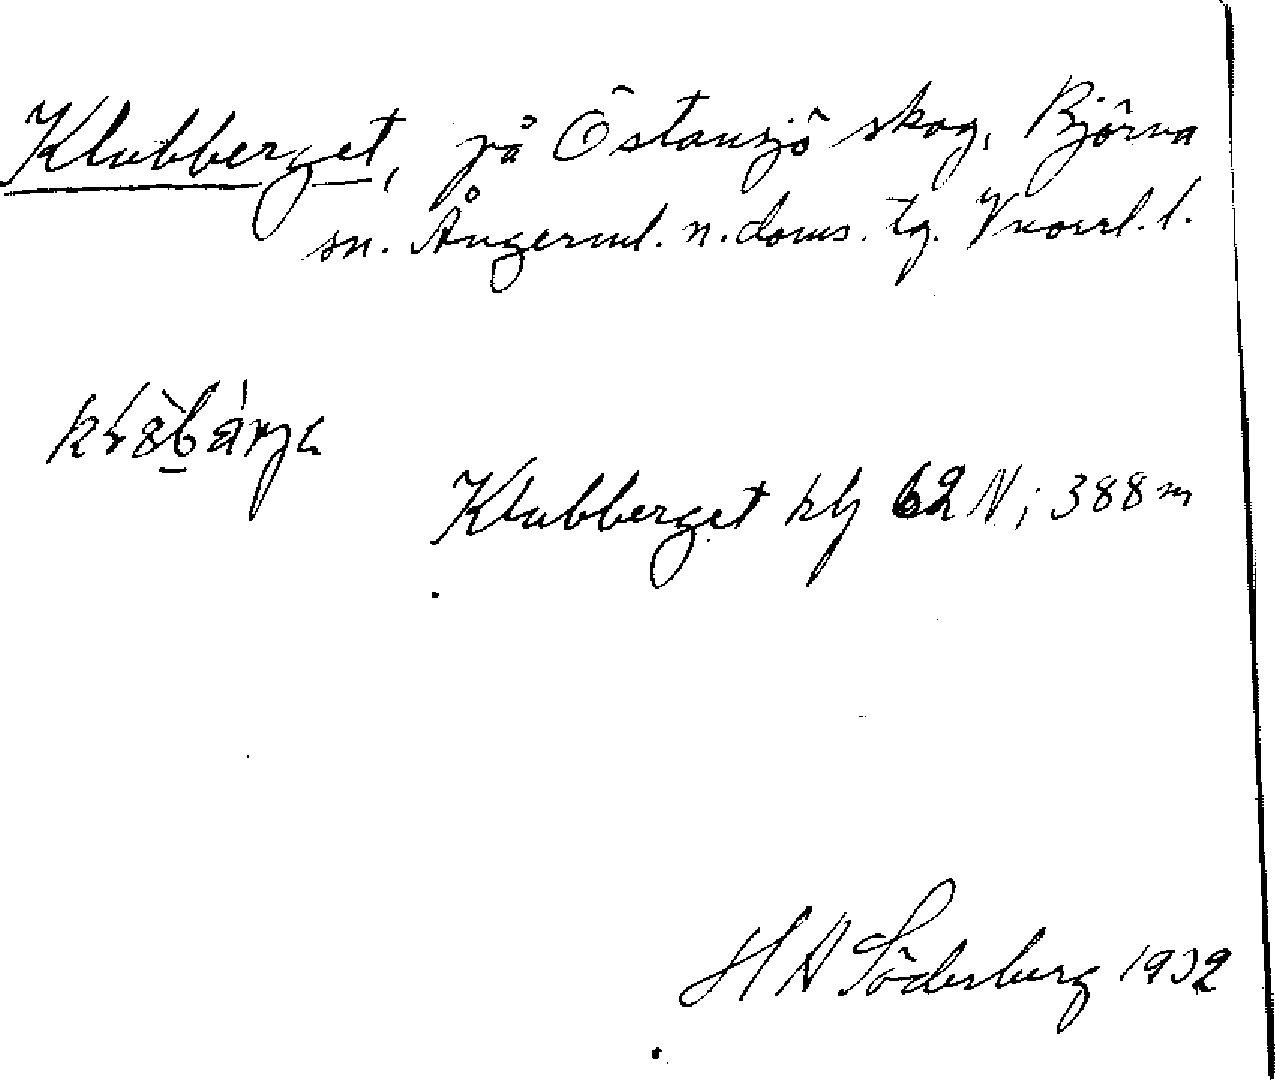 Klubberget, på Östansjö skog, Björna
sn. Ångerml. n. doms. tg. Vnorrl. l.
Klubberget kbl 62 N; 388 m
H A Söderberg 1932